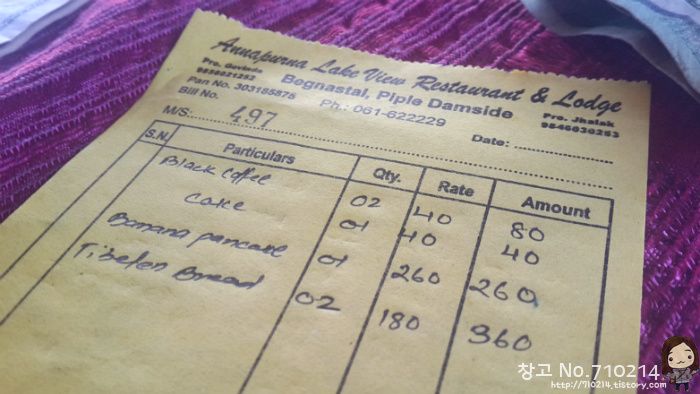 Annapurna Lake View Restaurant & Lodge
Begnastal, Piple Damside
Pro. Govinda
9856021253
Pan No. 303185875
Ph.: 061-622229
Pro. Jhalak
9846030253
Bill No. 497
Date:
M/S:
S.N. Particulars Qty. Rate Amount
Black Coffee 02 40 80
Cake 01 40 40
Banana pancake 01 260 260
Tibeten Bread 02 180 360
창고 No.710214
http://710214.tistory.com/